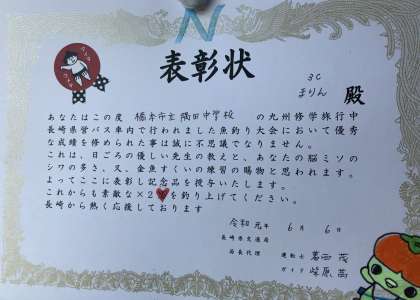 表彰状
3C
まりん 殿
あなたはこの度 橋本市立隅田中学校 の九州修学旅行中
長崎県営バス車内で行われました魚釣り大会において優秀
な成績を修められた事は誠に不思議でなりません。
これは、日ごろの優しい先生の教えと、あなたの脳ミソの
シワの多さ、又、金魚すくいの練習の賜物と思われます。
よってここに表彰し記念品を授与いたします。
これからも素敵な×2❤を釣り上げてください。
長崎から熱く応援しております
令和 元年 6月 6日
長崎県交通局
局長代理 運転士 葛西 茂
ガイド